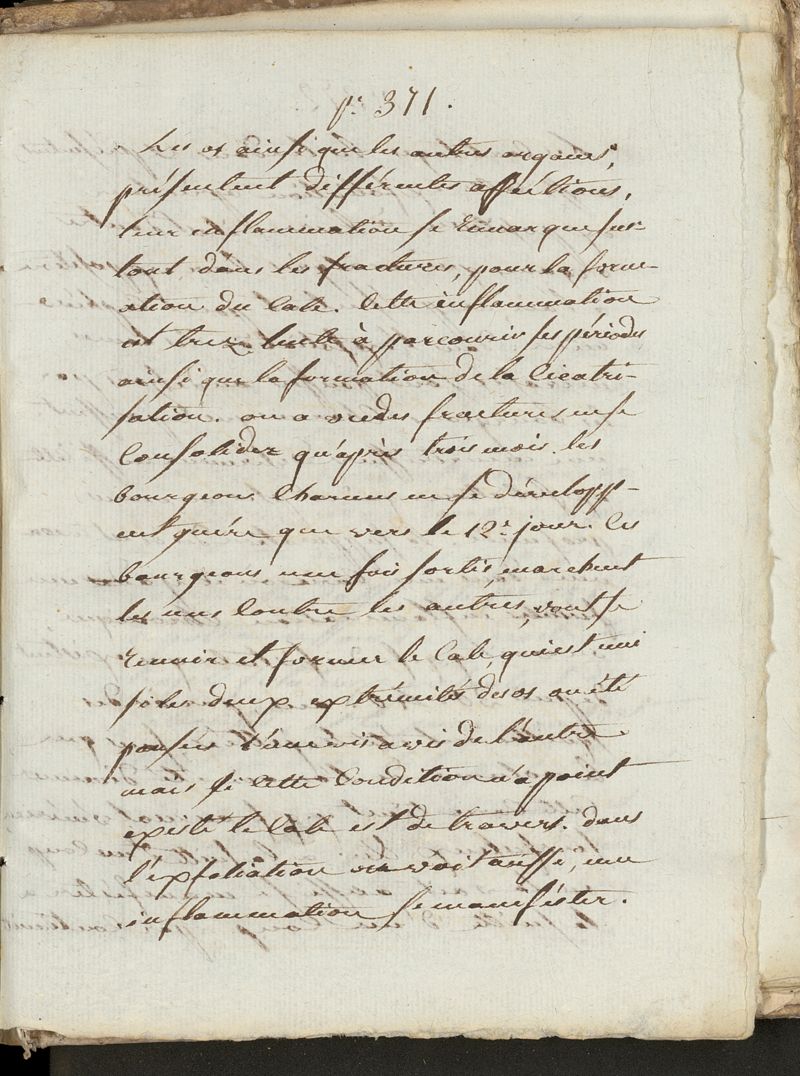 pe. 371.
Les os ainsi que les autres organes,
présentent différentes affections,
leur inflammation se remarque sur-
tout dans les fractures, pour la form-
ation du cale. Cette inflammation
est trez lente à parcourir ses périodes
ainsi que la formation de la Cicatri-
sation. on a vu des fractures ne se
Consolider qu'après trois mois. les
bourgeons Charnus ne se développ-
ent guére que vers le 12e. jour. Ces
bourgeons une fois sortis, marchent
les uns Contre les autres, vont se
reunir et former le Cale, qui est uni
si les deux extrémités des os on été
posées l'une vis a vis de l'autre
mais si cette Condition n'a point
existé le cale est de travers. dans
l'exfoliation on voit aussi, une
inflammation se manifester.